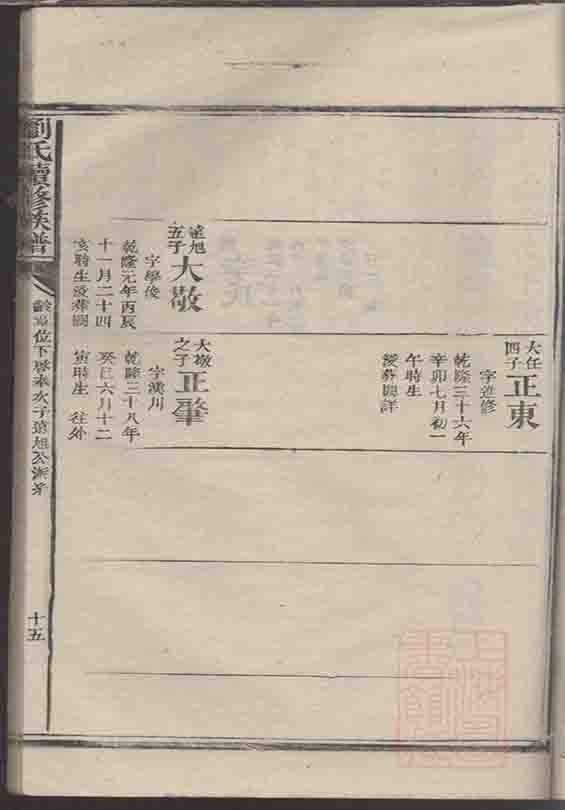 大任四子
正東
字進修
乾隆三十六年
辛卯七月初一
午時生
歿葬俱詳
達旭五子
大敬
字學俊
乾隆元年丙辰
十一月二十四
亥時生歿葬闕
大敬之子
正肇
字漢川
乾隆三十八年
癸巳六月十二
寅時生 往外
劉氏續修族譜
位下
次子達旭公派
十五